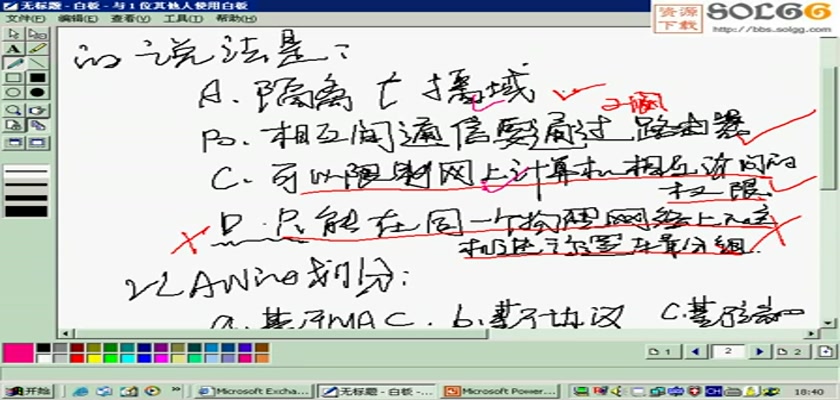 无标题 - 白板 - 与 1 位其他人使用白板
文件(F) 编辑(E) 查看(V) 工具(T) 帮助(H)
资源下载 SOLGG
http://bbs.solgg.com
的说法是:
A. 隔离广播域
二个网
B. 相互间通信要通过路由器
C. 可以限制网上计算机相互访问的
权限.
D. 只能在同一个物理网络上
机进行逻辑分组.
VLAN的划分:
a. 基于MAC. b. 基于协议 C. 基于
1 2 2
开始 Microsoft Excha... 无标题 - 白板 -... Microsoft Power... CH 18:40